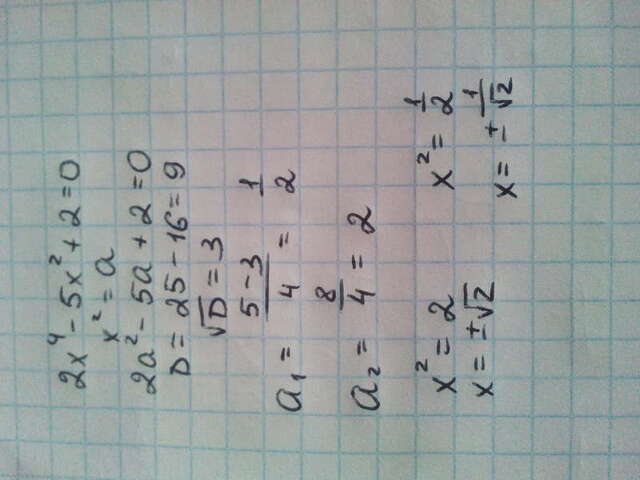 2x⁴ - 5x² + 2 = 0
x² = a
2a² - 5a + 2 = 0
D = 25 - 16 = 9
√D = 3
a₁ = (5 - 3)/4 = 1/2
a₂ = 8/4 = 2
x² = 2 x² = 1/2
x = ±√2 x = ± 1/√2